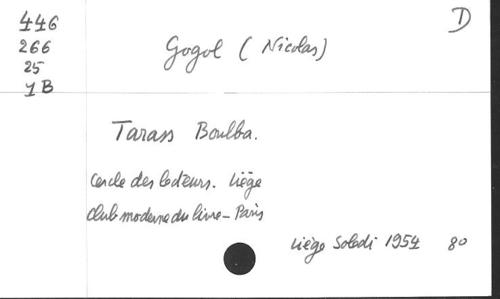 446
D
266
Gogol (Nicolas)
25
1B
Tarass Boulba.
Cercle des lecteurs. Liège
Club moderne du livre - Paris
Liège Soledi 1954 80